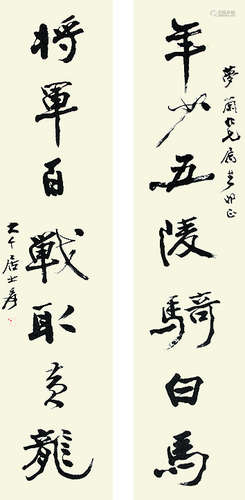 夢蘭仁兄屬正
年少五陵騎白馬
將軍百戰取黃龍
大千居士爰